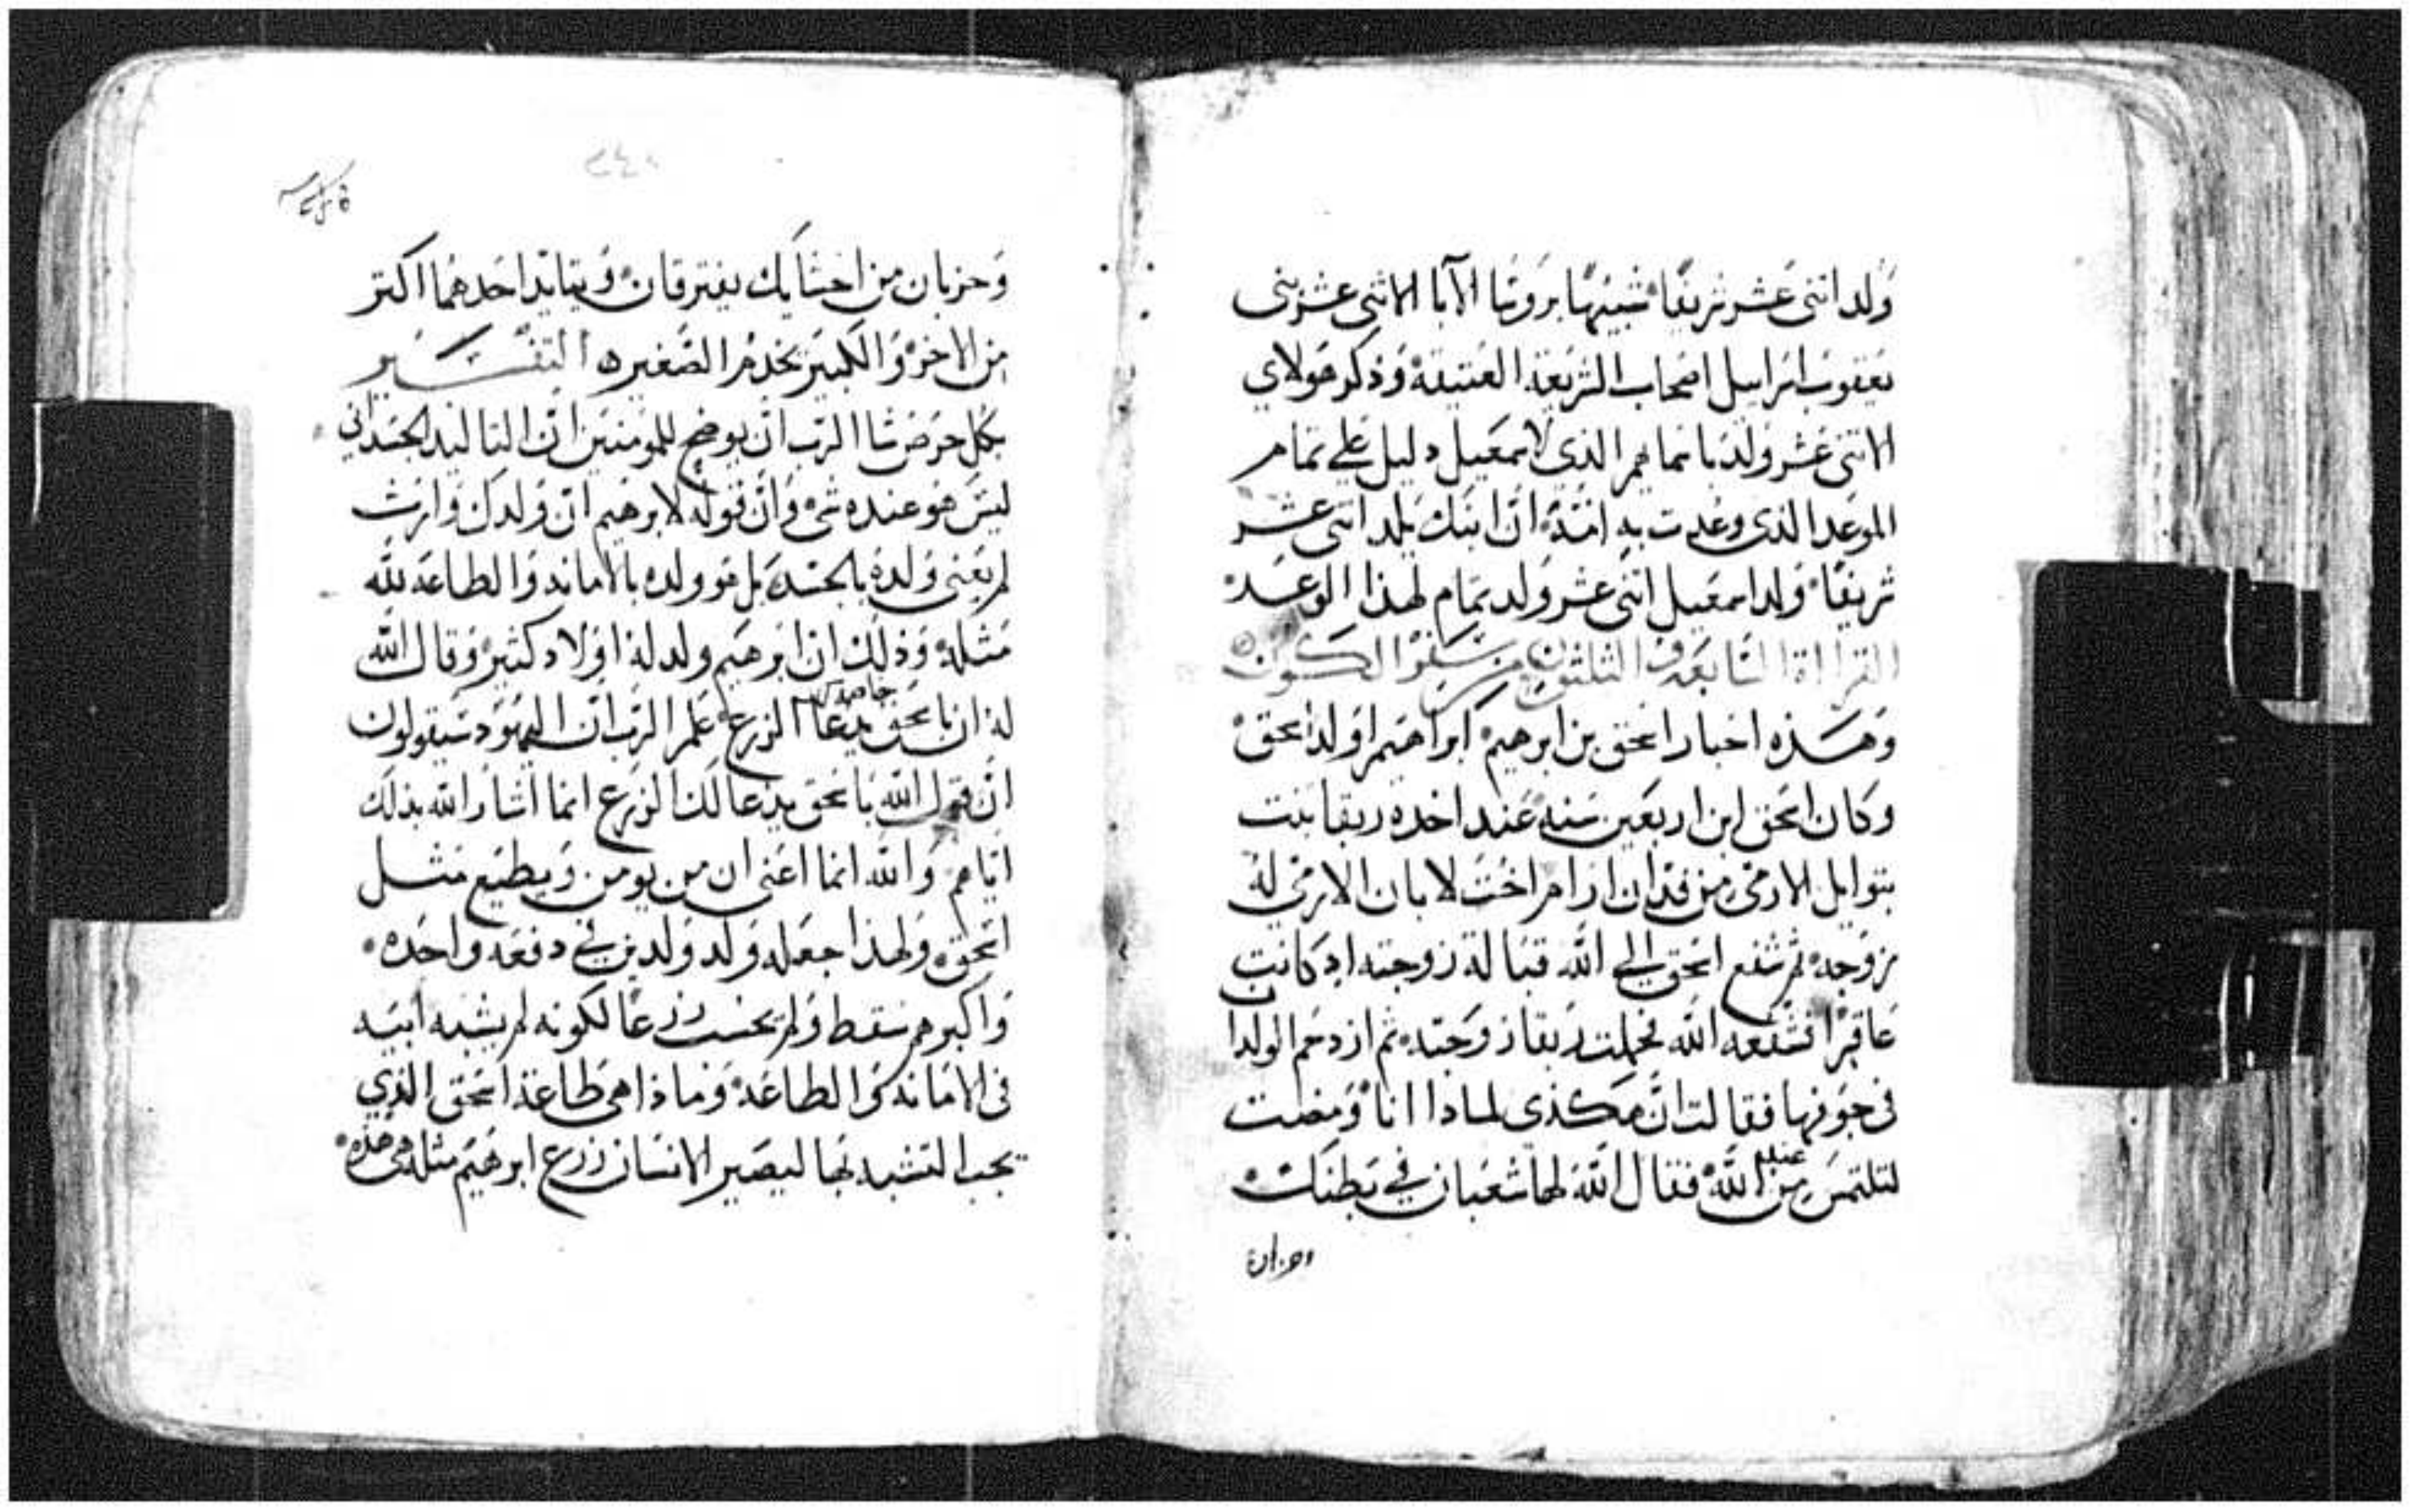 ولد اثنى عشر شريفًا شبيهًا برووسا الآبا الاثنى عشر بنى
يعقوب اسراييل اصحاب الشريعة العتيقة وذكر هولاى
الاثنى عشر ولد باسماهم الذي لاسمعيل دليل على تمام
الموعد الذي وعدت به امّه ان ابنك يلد اثنى عشر
شريفًا ولد اسمعيل اثنى عشر ولد تمام لهذا الوعد
القراة السابعة والثلثون من سفر الكون
وهذه اخبار اسحق بن ابرهيم ابراهيم اولد اسحق
وكان اسحق ابن اربعين سنه عند اخده ربقا بنت
بتوايل الارمى من فدان ارام اخت لابان الارمي له
زوجه ثم شفع اسحق الي الله قبالة زوجته اد كانت
عاقرًا فشفعه الله فحملت ربقا زوجته ثم ازدحم الولدان
في جوفها فقالت ان هكذى لمادا انا ومضت
لتلتمس من عند الله فقال الله لها شعبان في بطنك
وحزبان
وحزبان من احشايك يفترقان ويتايد احدهما اكتر
من الاخر والكبير يخدم الصغير التفسير
بكل حرص شا الرب ان يوضح للمومنين ان التاليد الجسداني
ليس هو عنده شى وان قوله لابرهيم ان ولدك وارث
لم يعنى ولده بالجسد بل هو ولده بالامانه والطاعة لله
مثله وذلك ان ابرهيم ولد له اولاد كثير وقال الله
له ان باسحق يدعا الزرع علم الرب ان اليهود سيقولون
ان قول الله باسحق يدعا لك الزرع انما اشار الله بذلك
اياهم والله انما اعنى ان من يومن ويطيع مثل
اسحق ولهذا جعله ولد ولدين في دفعه واحده
واكبرهم سقط ولم يحسب زرعًا لكونه لم يشبه ابيه
في الامانه والطاعه وماذا هى طاعة اسحق الذي
يجب التشبه بها ليصير الانسان زرع ابرهيم مثله هى هذه